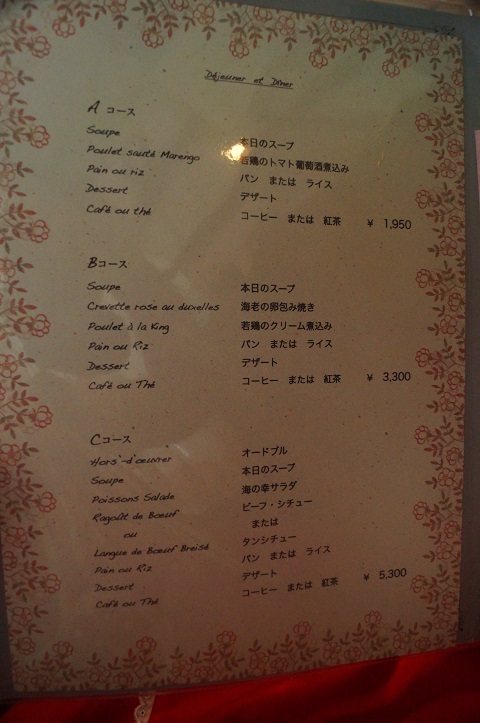 Déjeuner et Dîner
A コース
Soupe 本日のスープ
Poulet sauté Marengo 若鶏のトマト葡萄酒煮込み
Pain ou riz パン または ライス
Dessert デザート
Café ou thé コーヒー または 紅茶 ¥ 1,950
Bコース
Soupe 本日のスープ
Crevette rose au duxelles 海老の卵包み焼き
Poulet à la King 若鶏のクリーム煮込み
Pain ou Riz パン または ライス
Dessert デザート
Café ou Thé コーヒー または 紅茶 ¥ 3,300
Cコース
Hors'-d'oeuvrer オードブル
Soupe 本日のスープ
Poissons Salade 海の幸サラダ
Ragoût de Boeuf ビーフ・シチュー
ou または
Langue de Boeuf Breisé タンシチュー
Pain ou Riz パン または ライス
Dessert デザート
Café ou Thé コーヒー または 紅茶 ¥ 5,300